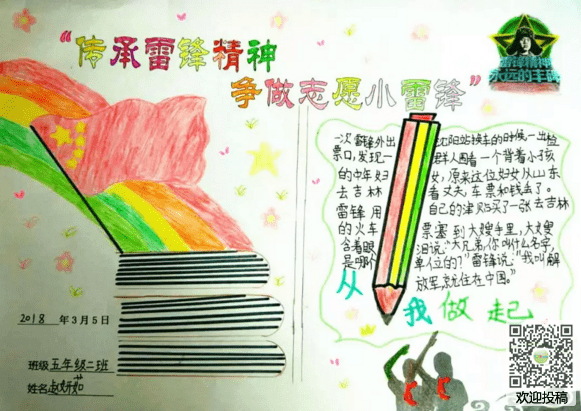 “传承雷锋精神
争做志愿小雷锋”
雷锋精神
永远的丰碑
一次雷锋外出 沈阳站换车的时候一出检
票口,发现一 群人围着一个背着小孩
的中年妇 女,原来这位妇女从山东
去吉林 看丈夫,车票和钱丢了。
雷锋用 自己的津贴买了一张去吉林
的火车 票塞到大嫂手里,大嫂
含着眼 泪说:“大兄弟,你叫什么名字,
是哪个 单位的?”雷锋说:“我叫解
放军,就住在中国。”
从我做起
2018 年3月5日
班级五年级二班
姓名赵妍
欢迎投稿